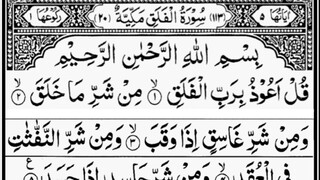 اٰيَاتُهَا ٥ (١١٣) سُوْرَةُ الْفَلَقِ مَكِّيَّةٌ (٢٠) رُكُوْعُهَا ١
بِسْمِ اللّٰهِ الرَّحْمٰنِ الرَّحِيْمِ
قُلْ اَعُوْذُ بِرَبِّ الْفَلَقِ ۙ﴿١﴾ مِنْ شَرِّ مَا خَلَقَ ۙ﴿٢﴾
وَمِنْ شَرِّ غَاسِقٍ اِذَا وَقَبَ ۙ﴿٣﴾ وَمِنْ شَرِّ النَّفّٰثٰتِ
فِى الْعُقَدِ ۙ﴿٤﴾ وَمِنْ شَرِّ حَاسِدٍ اِذَا حَسَدَ ﴿٥﴾